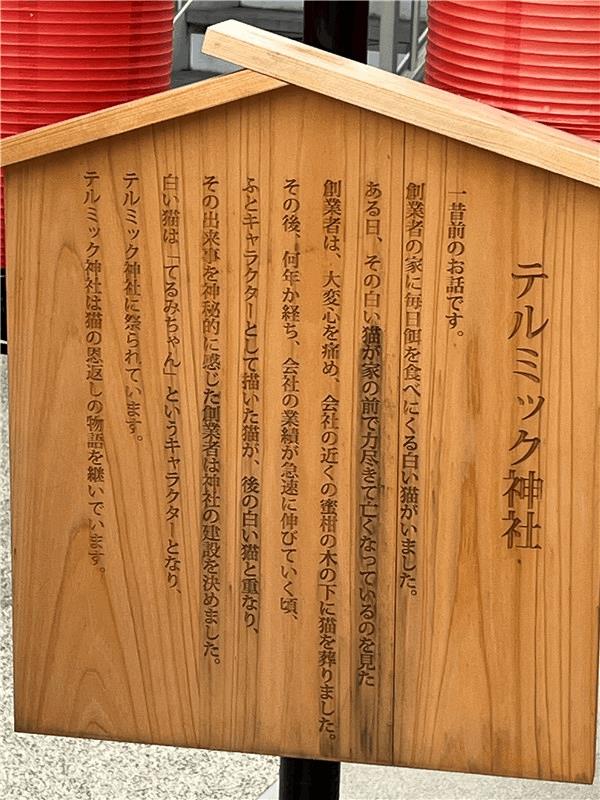 テルミック神社
一昔前のお話です。
創業者の家に毎日餌を食べにくる白い猫がいました。
ある日、その白い猫が家の前で力尽きて亡くなっているのを見た
創業者は、大変心を痛め、会社の近くの蜜柑の木の下に猫を葬りました。
その後、何年か経ち、会社の業績が急速に伸びていく頃、
ふとキャラクターとして描いた猫が、後の白い猫と重なり、
その出来事を神秘的に感じた創業者は神社の建設を決めました。
白い猫は「てるみちゃん」というキャラクターとなり、
テルミック神社に祭られています。
テルミック神社は猫の恩返しの物語を継いでいます。